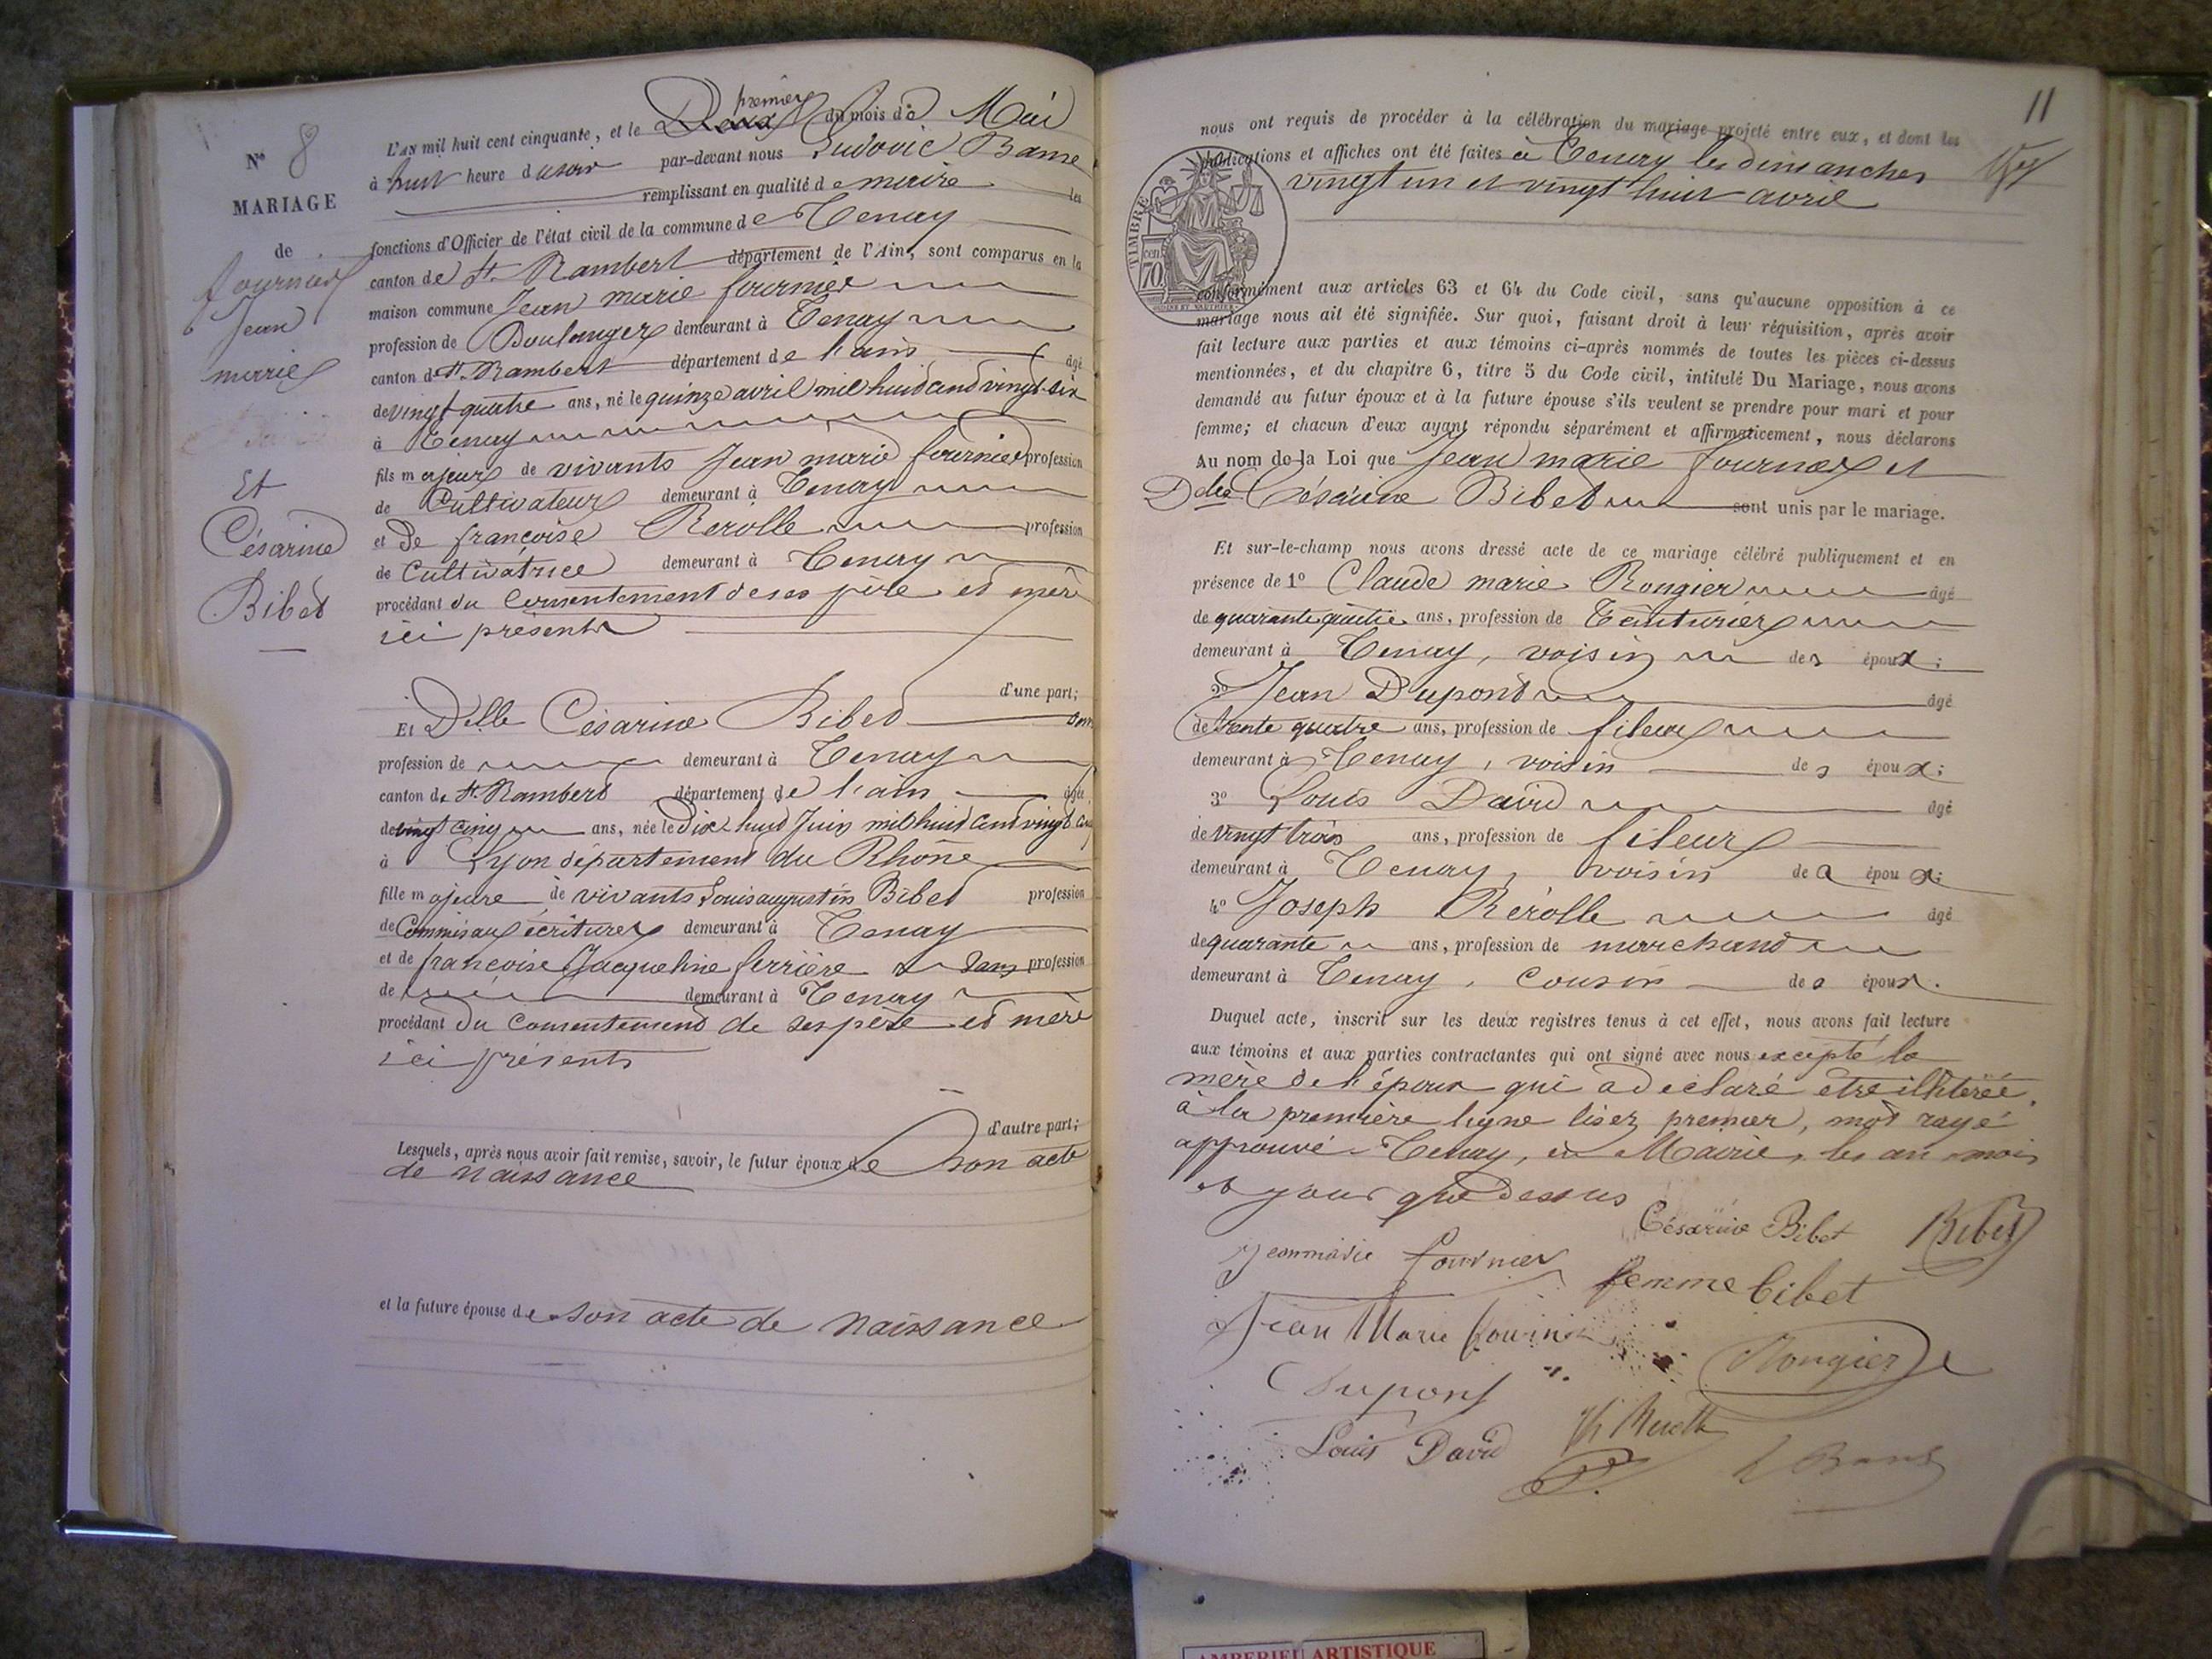 N° 8
MARIAGE
de
fournier
Jean
marie
Et
Césarine
Bibet
L'AN mil huit cent cinquante, et le Deux premier du mois de Mai
à huit heure du soir par-devant nous Ludovic Bame
remplissant en qualité de maire les
fonctions d'Officier de l'état civil de la commune de Tenay
canton de St. Rambert département de l'Ain, sont comparus en la
maison commune Jean marie fournier
profession de Boulanger demeurant à Tenay
canton de St. Rambert département de l'ain âgé
de vingt quatre ans, né le quinze avril mil huid cend vingt six
à Tenay
fils majeur de vivants Jean marie fournier profession
de Cultivateur demeurant à Tenay
et De françoise Rerolle profession
de Cultivatrice demeurant à Tenay
procédant du consentement de ses père et mère
ici présents
d'une part;
Et Delle Césarine Bibet sans
profession de demeurant à Tenay
canton de St. Rambert département de l'ain âgée
de vingt cinq ans, née le Dix huid Juin mil huid cend vingt cinq
à Lyon département du Rhône
fille majeure de vivants Louis augustin Bibet profession
de Commis aux écritures demeurant à Tenay
et de françoise Jacqueline ferrière sans profession
de demeurant à Tenay
procédant du consentement de ses père et mère
ici présents
d'autre part;
Lesquels, après nous avoir fait remise, savoir, le futur époux de son acte
de naissance
et la future épouse de son acte de naissance
11
nous ont requis de procéder à la célébration du mariage projeté entre eux, et dont les
publications et affiches ont été faites à Tenay les dimanches
vingt un et vingt huit avril
TIMBRE
70 cen
conformément aux articles 63 et 64 du Code civil, sans qu'aucune opposition à ce
mariage nous ait été signifiée. Sur quoi, faisant droit à leur réquisition, après avoir
fait lecture aux parties et aux témoins ci-après nommés de toutes les pièces ci-dessus
mentionnées, et du chapitre 6, titre 5 du Code civil, intitulé Du Mariage, nous avons
demandé au futur époux et à la future épouse s'ils veulent se prendre pour mari et pour
femme; et chacun d'eux ayant répondu séparément et affirmativement, nous déclarons
Au nom de la Loi que Jean marie fournier et
Delle Césarine Bibet sont unis par le mariage.
Et sur-le-champ nous avons dressé acte de ce mariage célébré publiquement et en
présence de 1° Claude marie Rongier âgé
de quarante quatre ans, profession de Teinturier
demeurant à Tenay, voisin des époux;
2° Jean Dupond âgé
de trente quatre ans, profession de fileur
demeurant à Tenay, voisin des époux;
3° Louis David âgé
de vingt trois ans, profession de fileur
demeurant à Tenay, voisin des époux;
4° Joseph Rérolle âgé
de quarante ans, profession de marchand
demeurant à Tenay, cousin des époux.
Duquel acte, inscrit sur les deux registres tenus à cet effet, nous avons fait lecture
aux témoins et aux parties contractantes qui ont signé avec nous excepté la
mère de l'époux qui a déclaré être illitérée.
à la première ligne lisez premier, mot rayé
approuvé. Tenay, en Mairie, les an mois
et jour que dessus
Césarine Bibet Bibet
Jeanmarie fournier
femme bibet
Jean Marie fournier
Rongier
Dupont
Louis David
AMBERIEU ARTISTIQUE